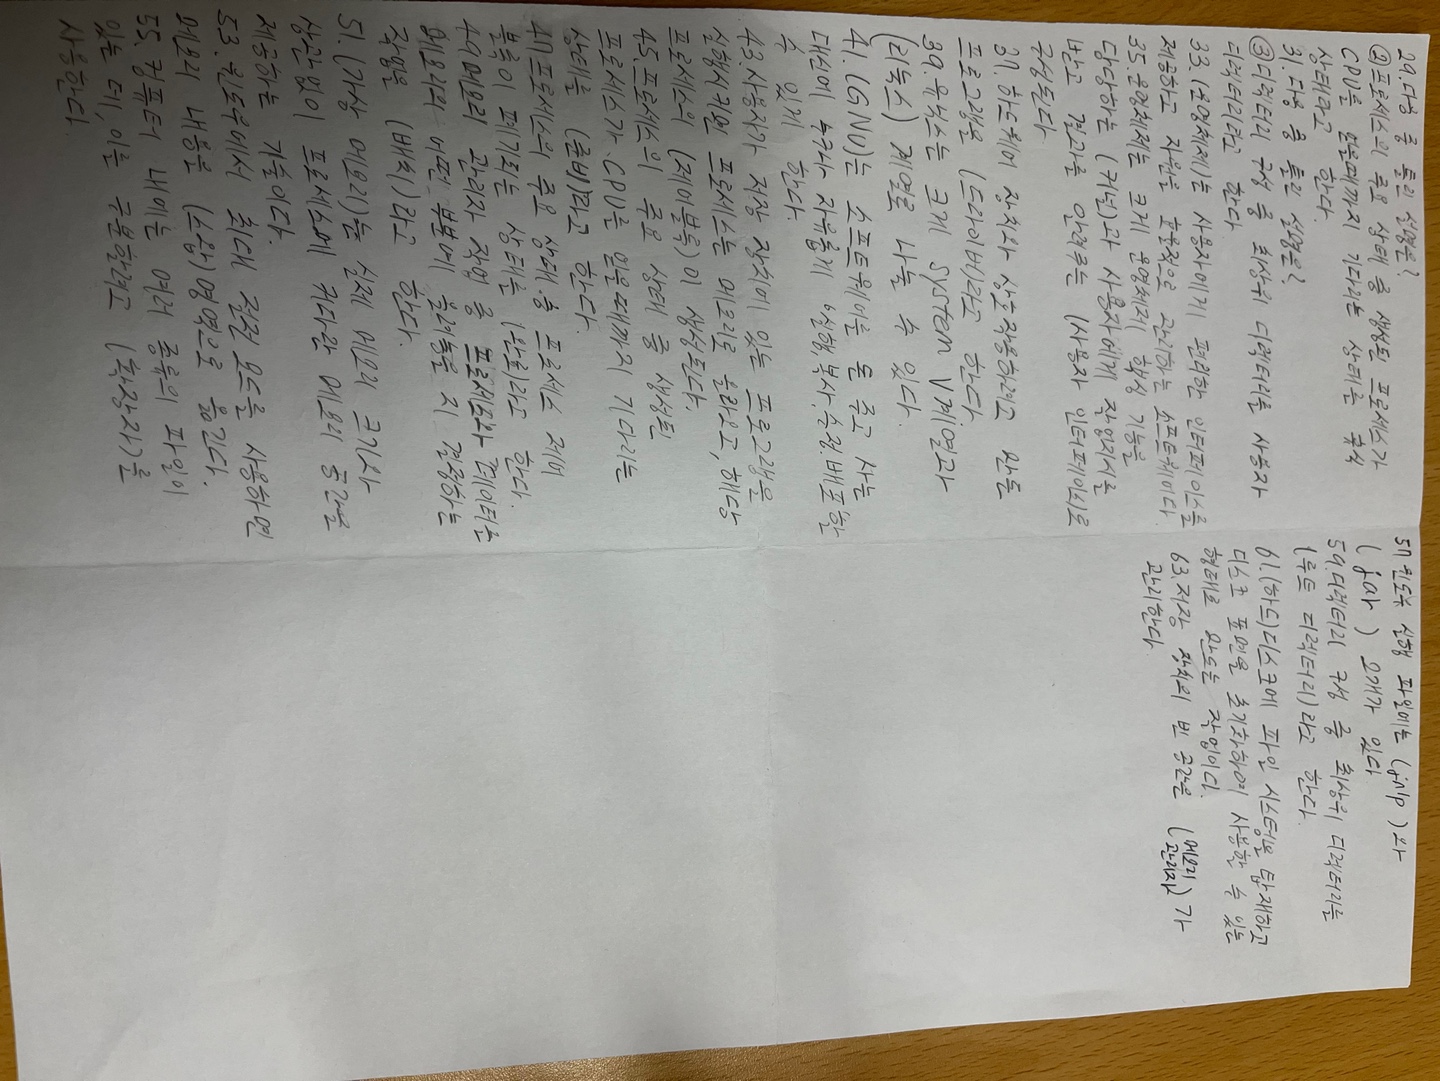 29.다음 중 틀린 설명은?
②프로세스의 주요 상태 중 생성된 프로세스가
CPU를 얻을때까지 기다리는 상태를 휴식
상태라고 한다.
31.다음 중 틀린 설명은?
③디렉터리 구성 중 최상위 디렉터리를 사용자
디렉터리라고 한다
33.(운영체제)는 사용자에게 편리한 인터페이스를
제공하고 자원을 효율적으로 관리하는 소프트웨어다
35.운영체제는 크게 운영체제 핵심 기능을
담당하는 (커널)과 사용자에게 작업지시를
받고 결과를 알려주는 (사용자 인터페이스)로
구성된다
37.하드웨어 장치와 상호작용하려고 만든
프로그램을 (드라이버)라고 한다.
39.유닉스는 크게 system V계열과
(리눅스) 계열로 나눌 수 있다.
41.(GNU)는 소프트웨어를 돈 주고 사는
대신에 누구나 자유롭게 '실행,복사,수정.배포'할
수 있게 한다.
43.사용자가 저장 장치에 있는 프로그램을
실행시키면 프로세스는 메모리로 올라오고,해당
프로세스의 (제어블록)이 생성된다.
45.프로세스의 주요 상태 중 생성된
프로세스가 CPU를 얻을때까지 기다리는
상태를 (준비)라고 한다.
47프로세스의 주요 상태 중 프로세스 제어
블록이 폐기되는 상태를 (완료)라고 한다.
49메모리 관리자 작업 중 프로세스와 데이터를
메모리의 어떤 부분에 올려놓을 지 결정하는
작업을 (배치)라고 한다.
51.(가상 메모리)는 실제 메모리 크기와
상관없이 프로세스에 커다란 메모리 공간을
제공하는 기술이다.
53.윈도우에서 최대 절전 모드를 사용하면
메모리 내용을 (스왑)영역으로 옮긴다.
55.컴퓨터 내에는 여러 종류의 파일이
있는 데,이를 구분할려고 (확장자)를
사용한다.
57 윈도우 실행 파일에는 (jnlp)와
(jar) 2개가 있다
59.디렉터리 구성 중 최상위 디렉터리를
(루트 디렉터리)라고 한다.
61.(하드)디스크에 파일 시스템을 탑재하고
디스크 표면을 초기화하여 사용할 수 있는
형태로 만드는 작업이다.
63.저장 장치의 빈 공간은 (메모리 관리자)가
관리한다.